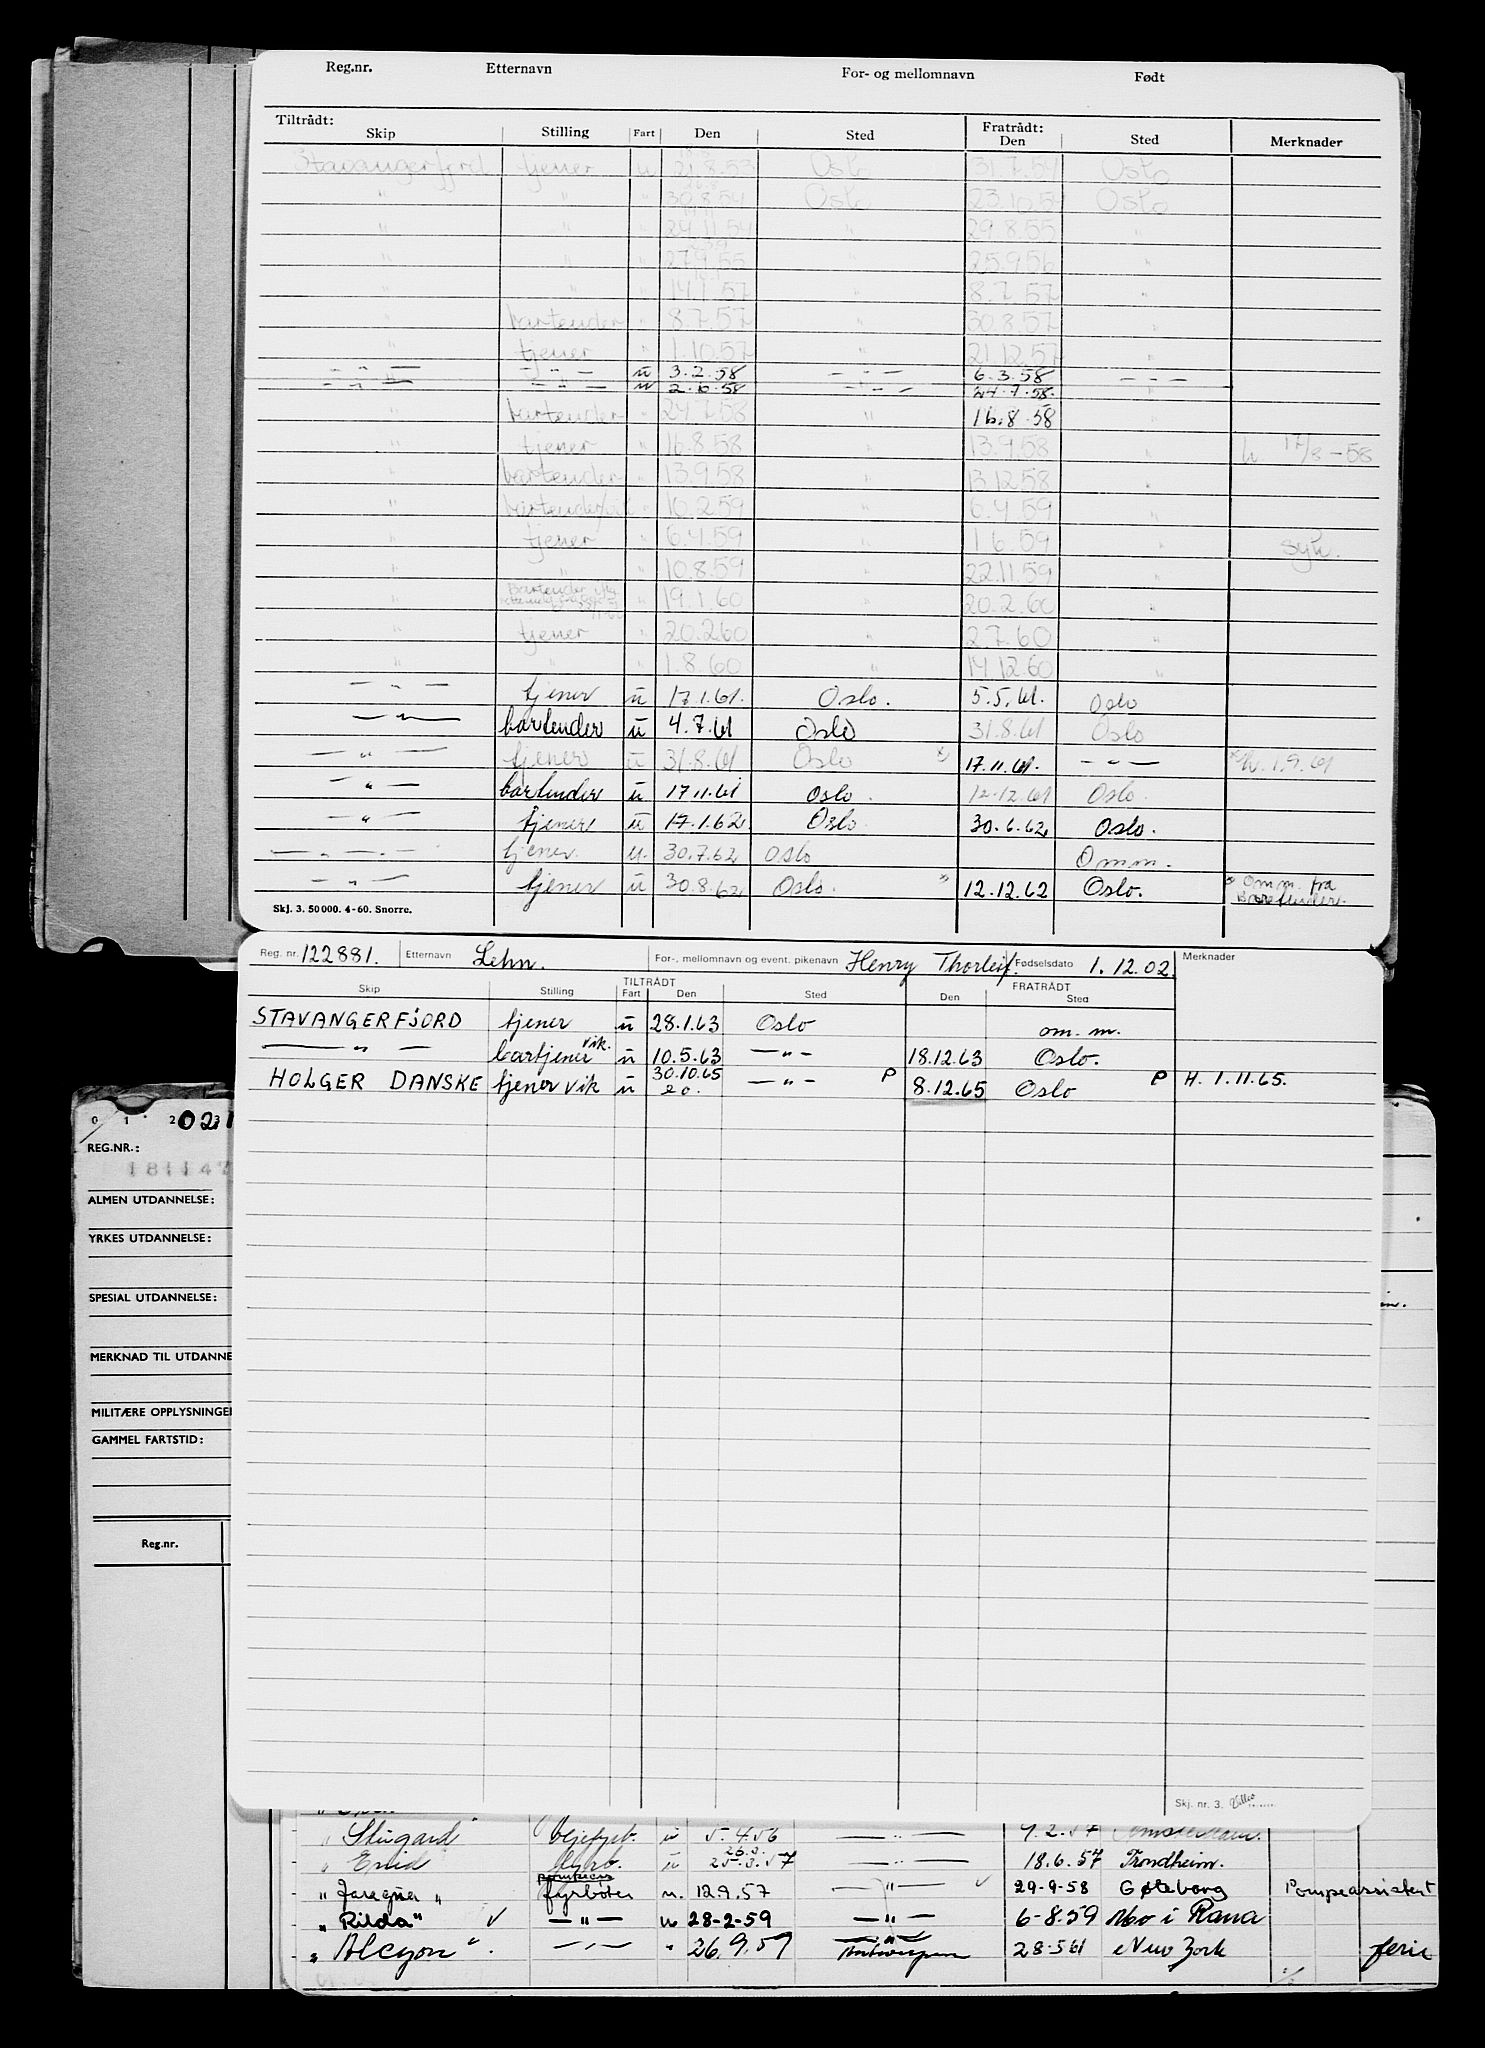 Reg.nr. Etternavn For- og mellomnavn Født
Tiltrådt: Fratrådt:
Skip Stilling Fart Den Sted Den Sted Merknader
Stavangerfjord tjener u 21.8.53 Oslo 31.7.54 Oslo
" " " 30.8.54 Oslo 23.10.54 Oslo
" " " 24.11.54 " 29.8.55
" " " 27.9.55 " 25.9.56 "
" " " 14.1.57 " 8.7.57 "
" bartender " 8.7.57 " 30.8.57 "
" tjener " 1.10.57 " 21.12.57 "
— " — — " — u 3.2.58 — " — 6.3.58 — " —
— " — — " — u 2.6.58 — " — 24.7.58. "
" bartender " 24.7.58 " 16.8.58 "
" tjener " 16.8.58 13.9.58 " h. 17/8-58
" bartender " 13.9.58 13.12.58 "
" bartender " 10.2.59 6.4.59 "
" tjener " 6.4.59 1.6.59 " syk.
" " " 10.8.59 22.11.59 "
" Bartender " 19.1.60 " 20.2.60 "
" tjener " 20.2.60 " 2.7.60 "
" " " 1.8.60 " 14.12.60 "
— " — tjener u 17.1.61. Oslo. 5.5.61. Oslo
— " — bartender u 4.7.61 Oslo 31.8.61 Oslo
— " — tjener u 31.8.61 Oslo x) 17.11.61. — " — x) h. 1.9.61
— " — bartender u 17.11.61 Oslo. 12.12.61 Oslo.
— " — tjener u 17.1.62. Oslo. 30.6.62 Oslo.
— " — tjener. u. 30.7.62 Oslo Omm.
— " — tjener u 30.8.62 Oslo. x) 12.12.62 Oslo. x Omm. fra
Bartender.
Skj. 3. 50 000. 4-60. Snorre.
Reg. nr. 122881. Etternavn Lehn. For-, mellomnavn og event. pikenavn Henry Thorleif. Fødselsdato 1.12.02. Merknader
TILTRÅDT FRATRÅDT
Skip Stilling Fart Den Sted Den Sted
STAVANGERFJORD tjener u 28.1.63 Oslo om. m.
— " — bartjener vik. u 10.5.63 — " — 18.12.63 Oslo.
HOLGER DANSKE tjener vik u 30.10.65 — " — P 8.12.65 Oslo P H. 1.11.65.
20.
0 1 2 3 021
REG.NR.:
181147
ALMEN UTDANNELSE:
YRKES UTDANNELSE:
SPESIAL UTDANNELSE:
MERKNAD TIL UTDANNE
MILITÆRE OPPLYSNINGER
GAMMEL FARTSTID:
Reg.nr.
Skj. nr. 3.
" u 5.4.56 — " — 9.2.57 Amsterdam.
" Enid u 26.3. 25.3.57 — " — 18.6.57 Trondheim.
" " fyrbøter u. 12.9.57 — " — 29-9-58 Gøteborg Pompeassistent
" Rilda" — " — u 28-2-59 — " — 6-8.59 Mo i Rana
" Alcyon". — " — " 26.9.59 Antwerpen 28-5-61 New York ferie